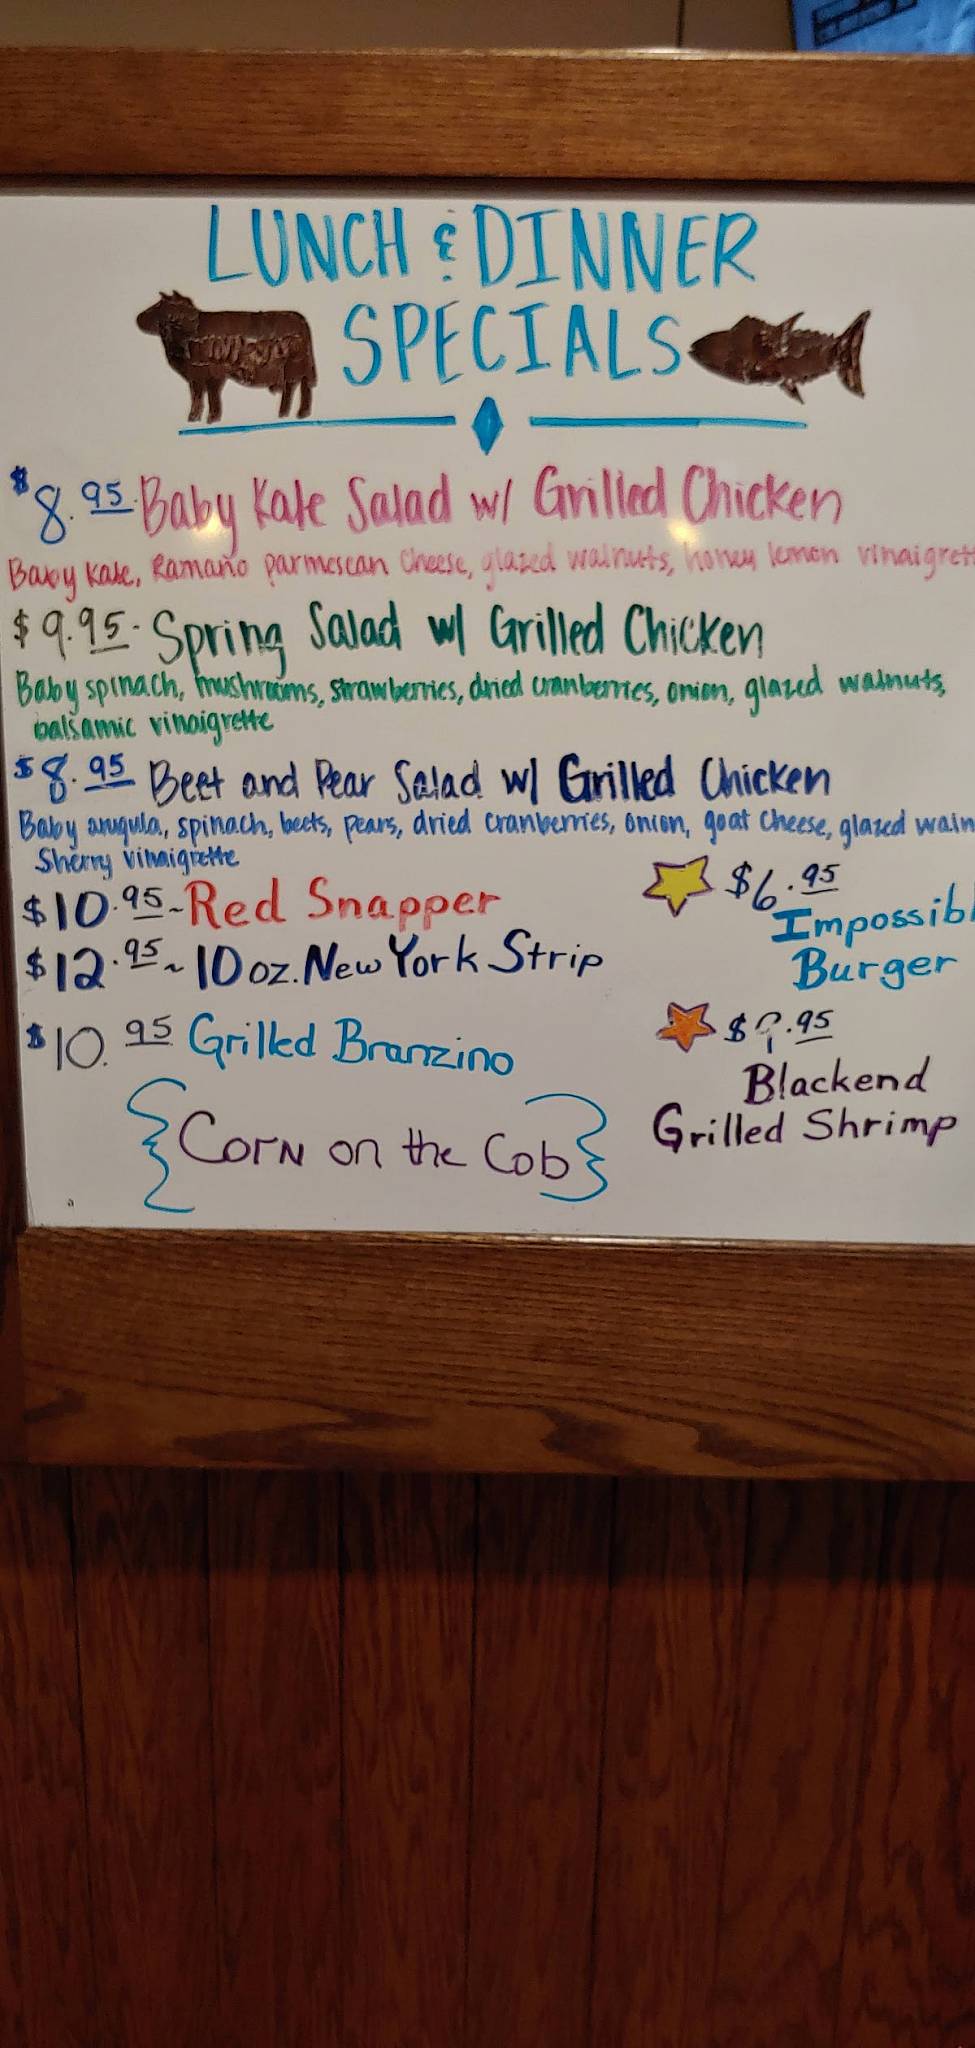 LUNCH & DINNER
SPECIALS
$8.95 Baby Kale Salad w/ Grilled Chicken
Baby Kale, Ramano parmescan cheese, glazed walnuts, honey lemon vinaigrett
$9.95 - Spring Salad w/ Grilled Chicken
Baby spinach, mushrooms, strawberries, dried cranberries, onion, glazed walnuts,
balsamic vinaigrette
$8.95 Beet and Pear Salad w/ Grilled Chicken
Baby arugula, spinach, beets, pears, dried cranberries, onion, goat cheese, glazed waln
Sherry vinaigrette
$10.95 ~ Red Snapper
$12.95 ~ 10 oz. New York Strip
$10.95 Grilled Branzino
{Corn on the Cob}
$6.95
Impossibl
Burger
Blackend
Grilled Shrimp